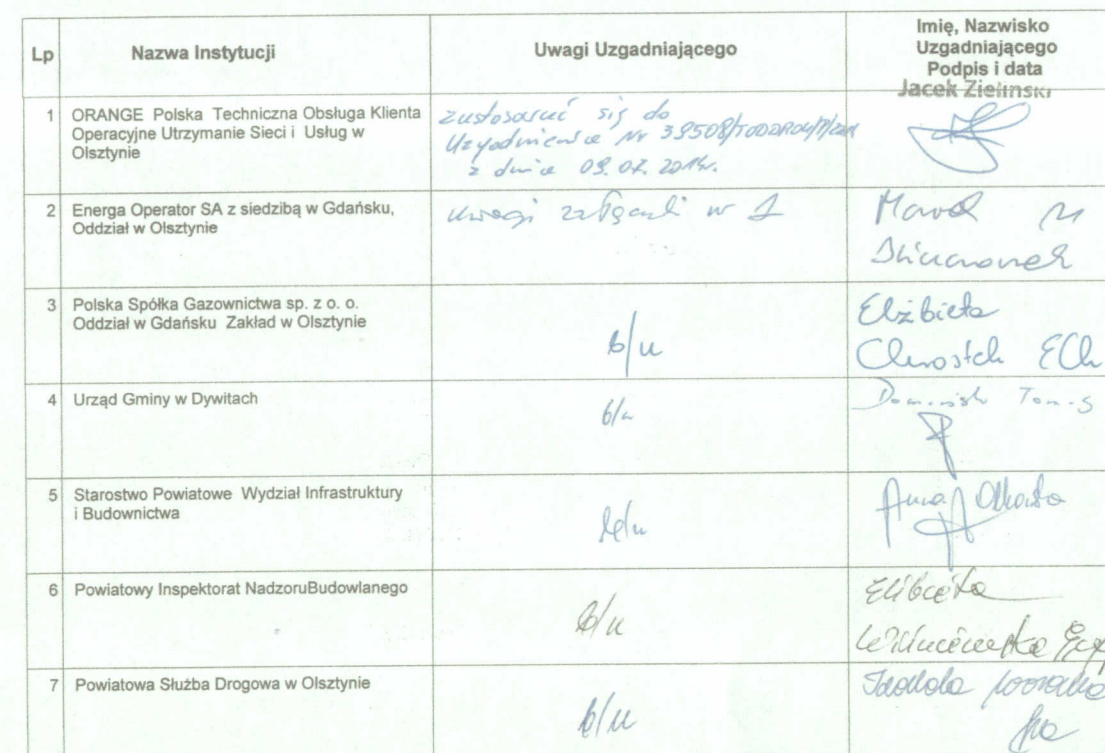 Lp
Nazwa Instytucji
Uwagi Uzgadniającego
Imię, Nazwisko
Uzgadniającego
Podpis i data
Jacek Zieliński
1 ORANGE Polska Techniczna Obsługa Klienta
Operacyjne Utrzymanie Sieci i Usług w
Olsztynie
zastosować się do
Uzgodnienia Nr
z dnia 09.07.2014r.
2 Energa Operator SA z siedzibą w Gdańsku,
Oddział w Olsztynie
uwagi w 1
3 Polska Spółka Gazownictwa sp. z o. o.
Oddział w Gdańsku Zakład w Olsztynie
b/u
Elżbieta
ECh
4 Urząd Gminy w Dywitach
b/u
5 Starostwo Powiatowe Wydział Infrastruktury
i Budownictwa
b/u
Anna
6 Powiatowy Inspektorat NadzoruBudowlanego
b/u
Elżbieta
7 Powiatowa Służba Drogowa w Olsztynie
b/u